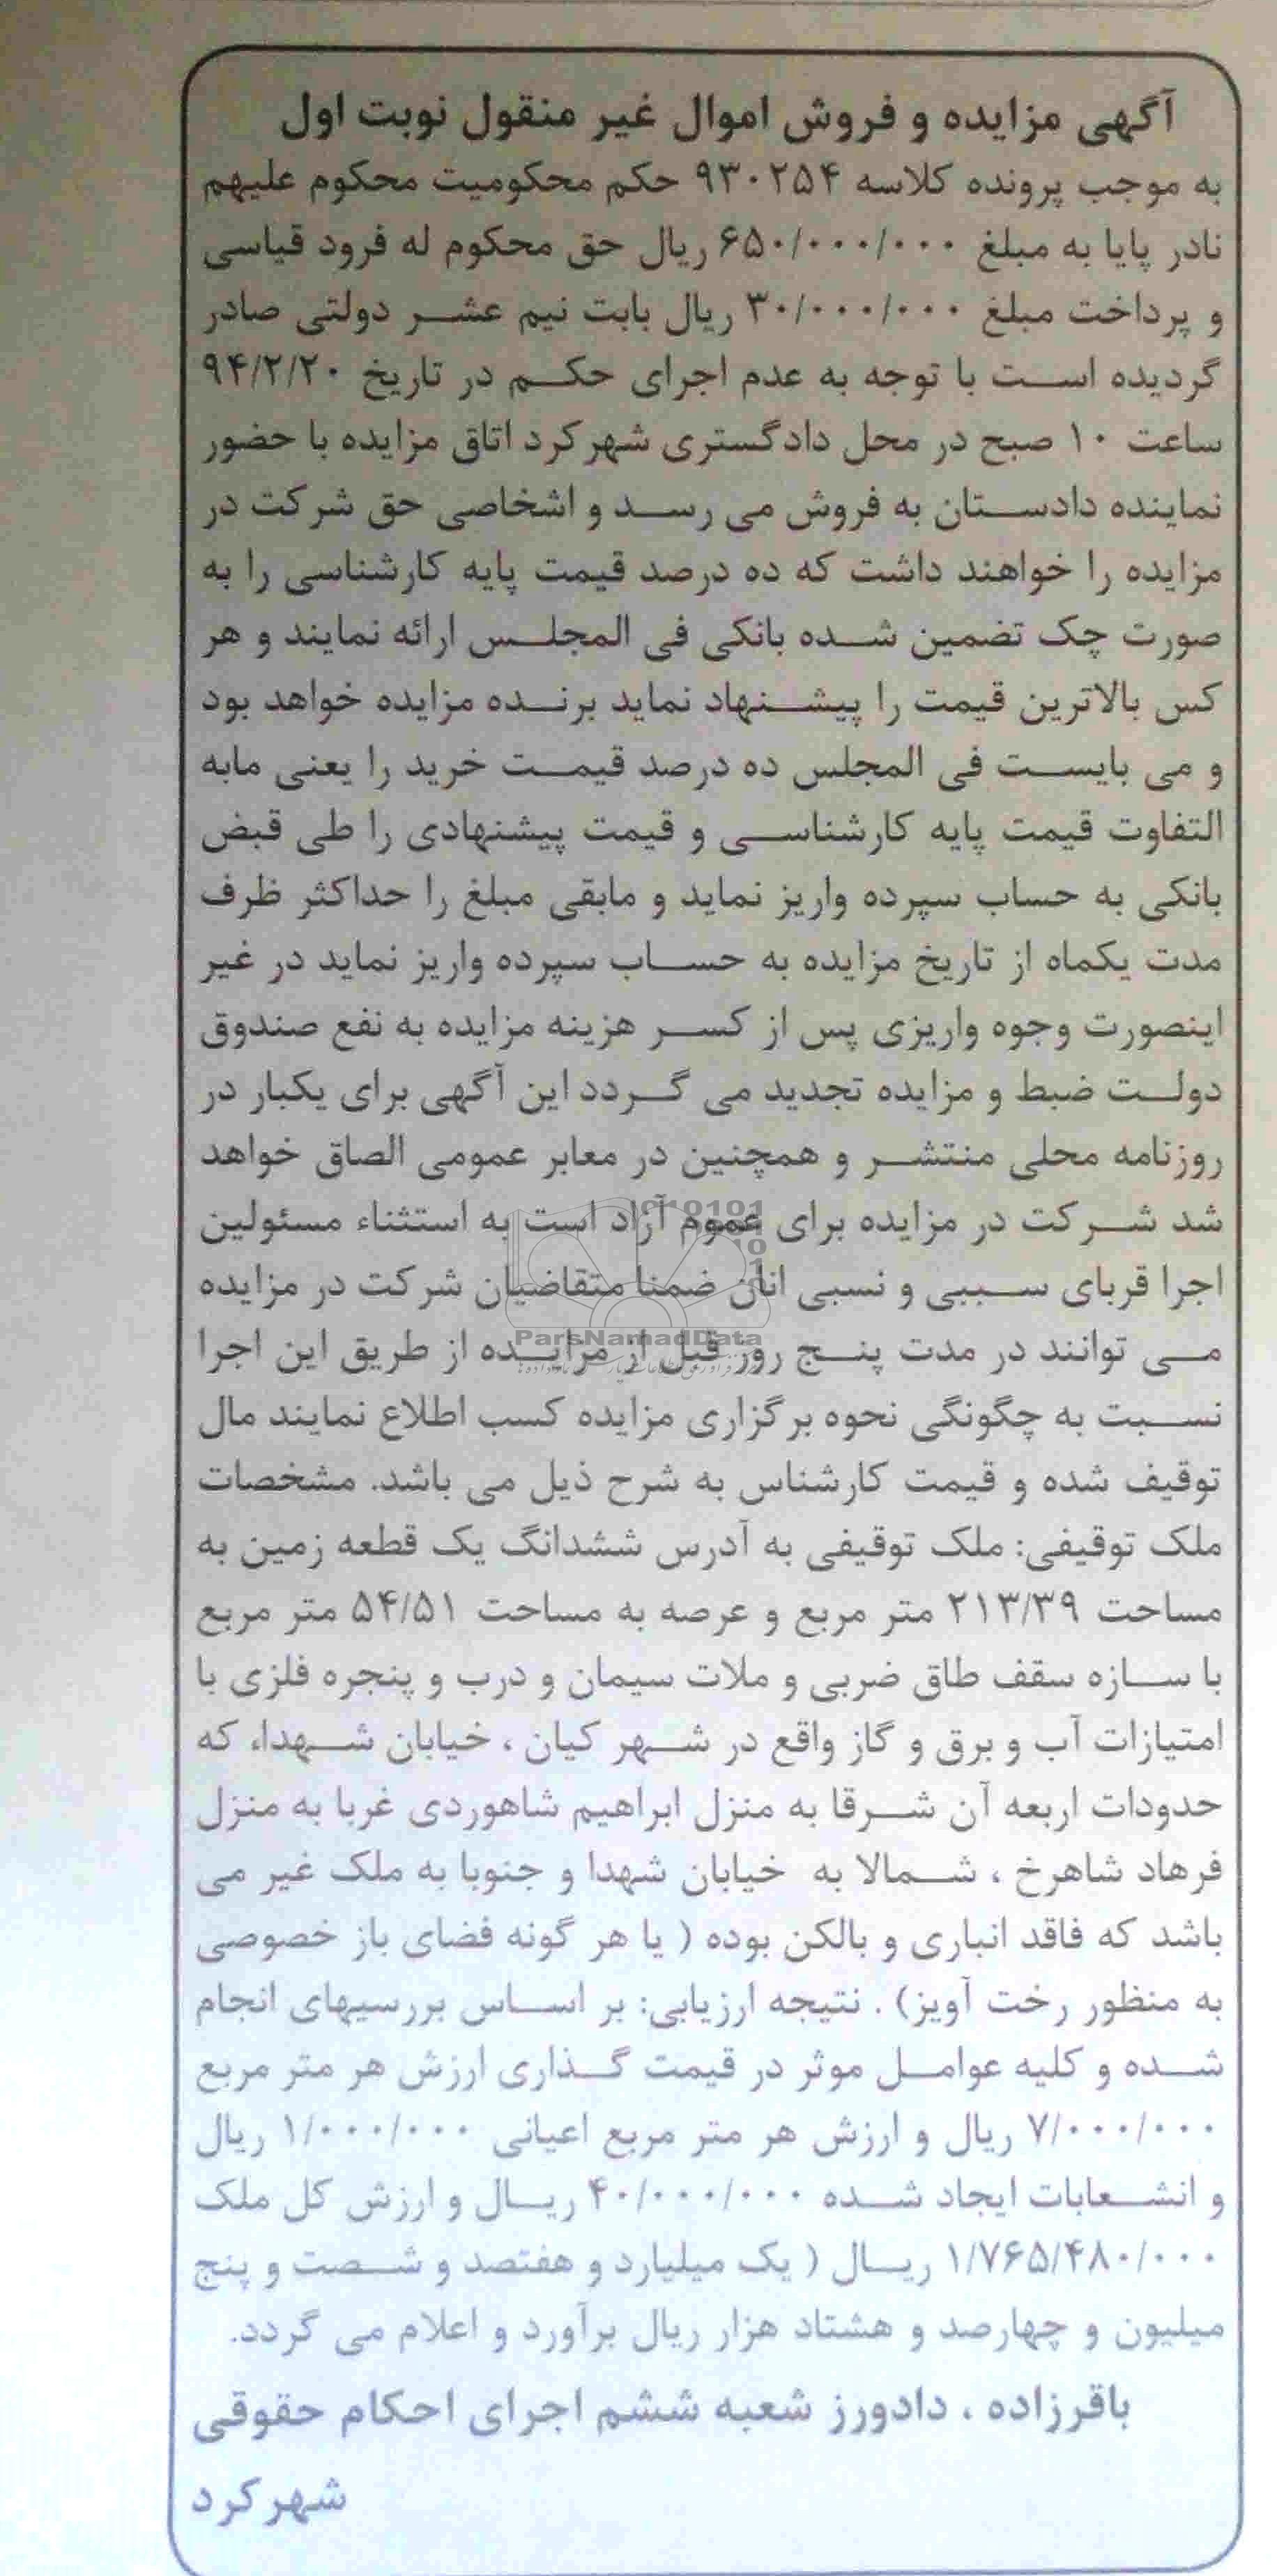 آگهی مزایده و فروش اموال غیر منقول نوبت اول
به موجب پرونده کلاسه ۹۳۰۲۵۴ حکم محکومیت محکوم علیهم
نادر پایا به مبلغ ۶۵۰/۰۰۰/۰۰۰ ریال حق محکوم له فرود قیاسی
و پرداخت مبلغ ۳۰/۰۰۰/۰۰۰ ریال بابت نیم عشر دولتی صادر
گردیده است با توجه به عدم اجرای حکم در تاریخ ۹۴/۲/۲۰
ساعت ۱۰ صبح در محل دادگستری شهرکرد اتاق مزایده با حضور
نماینده دادستان به فروش می رسد و اشخاصی حق شرکت در
مزایده را خواهند داشت که ده درصد قیمت پایه کارشناسی را به
صورت چک تضمین شده بانکی فی المجلس ارائه نمایند و هر
کس بالاترین قیمت را پیشنهاد نماید برنده مزایده خواهد بود
و می بایست فی المجلس ده درصد قیمت خرید را یعنی مابه
التفاوت قیمت پایه کارشناسی و قیمت پیشنهادی را طی قبض
بانکی به حساب سپرده واریز نماید و مابقی مبلغ را حداکثر ظرف
مدت یکماه از تاریخ مزایده به حساب سپرده واریز نماید در غیر
اینصورت وجوه واریزی پس از کسر هزینه مزایده به نفع صندوق
دولت ضبط و مزایده تجدید می گردد این آگهی برای یکبار در
روزنامه محلی منتشر و همچنین در معابر عمومی الصاق خواهد
شد شرکت در مزایده برای عموم آزاد است به استثناء مسئولین
اجرا قربای سببی و نسبی انان ضمنا متقاضیان شرکت در مزایده
ParsNamadData
می توانند در مدت پنج روز قبل از مزایده از طریق این اجرا
نسبت به چگونگی نحوه برگزاری مزایده کسب اطلاع نمایند مال
توقیف شده و قیمت کارشناس به شرح ذیل می باشد. مشخصات
ملک توقیفی: ملک توقیفی به آدرس ششدانگ یک قطعه زمین به
مساحت ۲۱۳/۳۹ متر مربع و عرصه به مساحت ۵۴/۵۱ متر مربع
با سازه سقف طاق ضربی و ملات سیمان و درب و پنجره فلزی با
امتیازات آب و برق و گاز واقع در شهر کیان ، خیابان شهداء که
حدودات اربعه آن شرقا به منزل ابراهیم شاهوردی غربا به منزل
فرهاد شاهرخ ، شمالا به خیابان شهدا و جنوبا به ملک غیر می
باشد که فاقد انباری و بالکن بوده ( یا هر گونه فضای باز خصوصی
به منظور رخت آویز) . نتیجه ارزیابی: بر اساس بررسیهای انجام
شده و کلیه عوامل موثر در قیمت گذاری ارزش هر متر مربع
۷/۰۰۰/۰۰۰ ریال و ارزش هر متر مربع اعیانی ۱/۰۰۰/۰۰۰ ریال
و انشعابات ایجاد شده ۴۰/۰۰۰/۰۰۰ ریال و ارزش کل ملک
۱/۷۶۵/۴۸۰/۰۰۰ ریال ( یک میلیارد و هفتصد و شصت و پنج
میلیون و چهارصد و هشتاد هزار ریال برآورد و اعلام می گردد.
باقرزاده ، دادورز شعبه ششم اجرای احکام حقوقی
شهرکرد